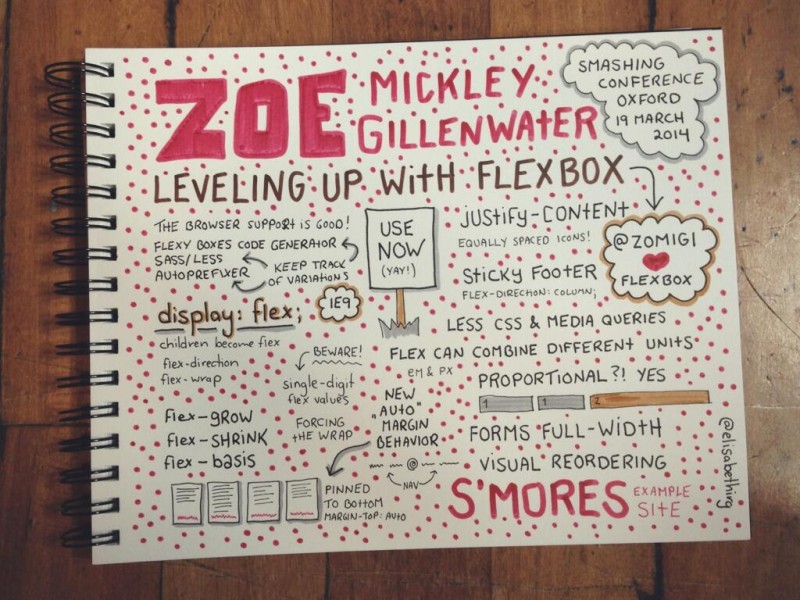 ZOE
MICKLEY
GILLENWATER
SMASHING
CONFERENCE
OXFORD
19 MARCH
2014
LEVELING UP WITH FLEXBOX
@ZOMIGI
FLEXBOX
THE BROWSER SUPPORT IS GOOD!
FLEXY BOXES CODE GENERATOR
SASS/LESS
AUTOPREFIXER
KEEP TRACK
OF VARIATIONS
USE
NOW
(YAY!)
JUSTIFY-CONTENT
EQUALLY SPACED ICONS!
STICKY FOOTER
FLEX-DIRECTION: COLUMN;
IE9
display: flex;
children become flex
flex-direction
flex-wrap
BEWARE!
single-digit
flex values
FORCING
THE WRAP
flex-GROW
flex-SHRINK
flex-basis
LESS CSS & MEDIA QUERIES
FLEX CAN COMBINE DIFFERENT UNITS
EM & PX
PROPORTIONAL?! YES
1 1 2
NEW
"AUTO"
MARGIN
BEHAVIOR
@
NAV
PINNED
TO BOTTOM
MARGIN-TOP: AUTO
FORMS FULL-WIDTH
VISUAL REORDERING
S'MORES
EXAMPLE
SITE
@elisabethirg